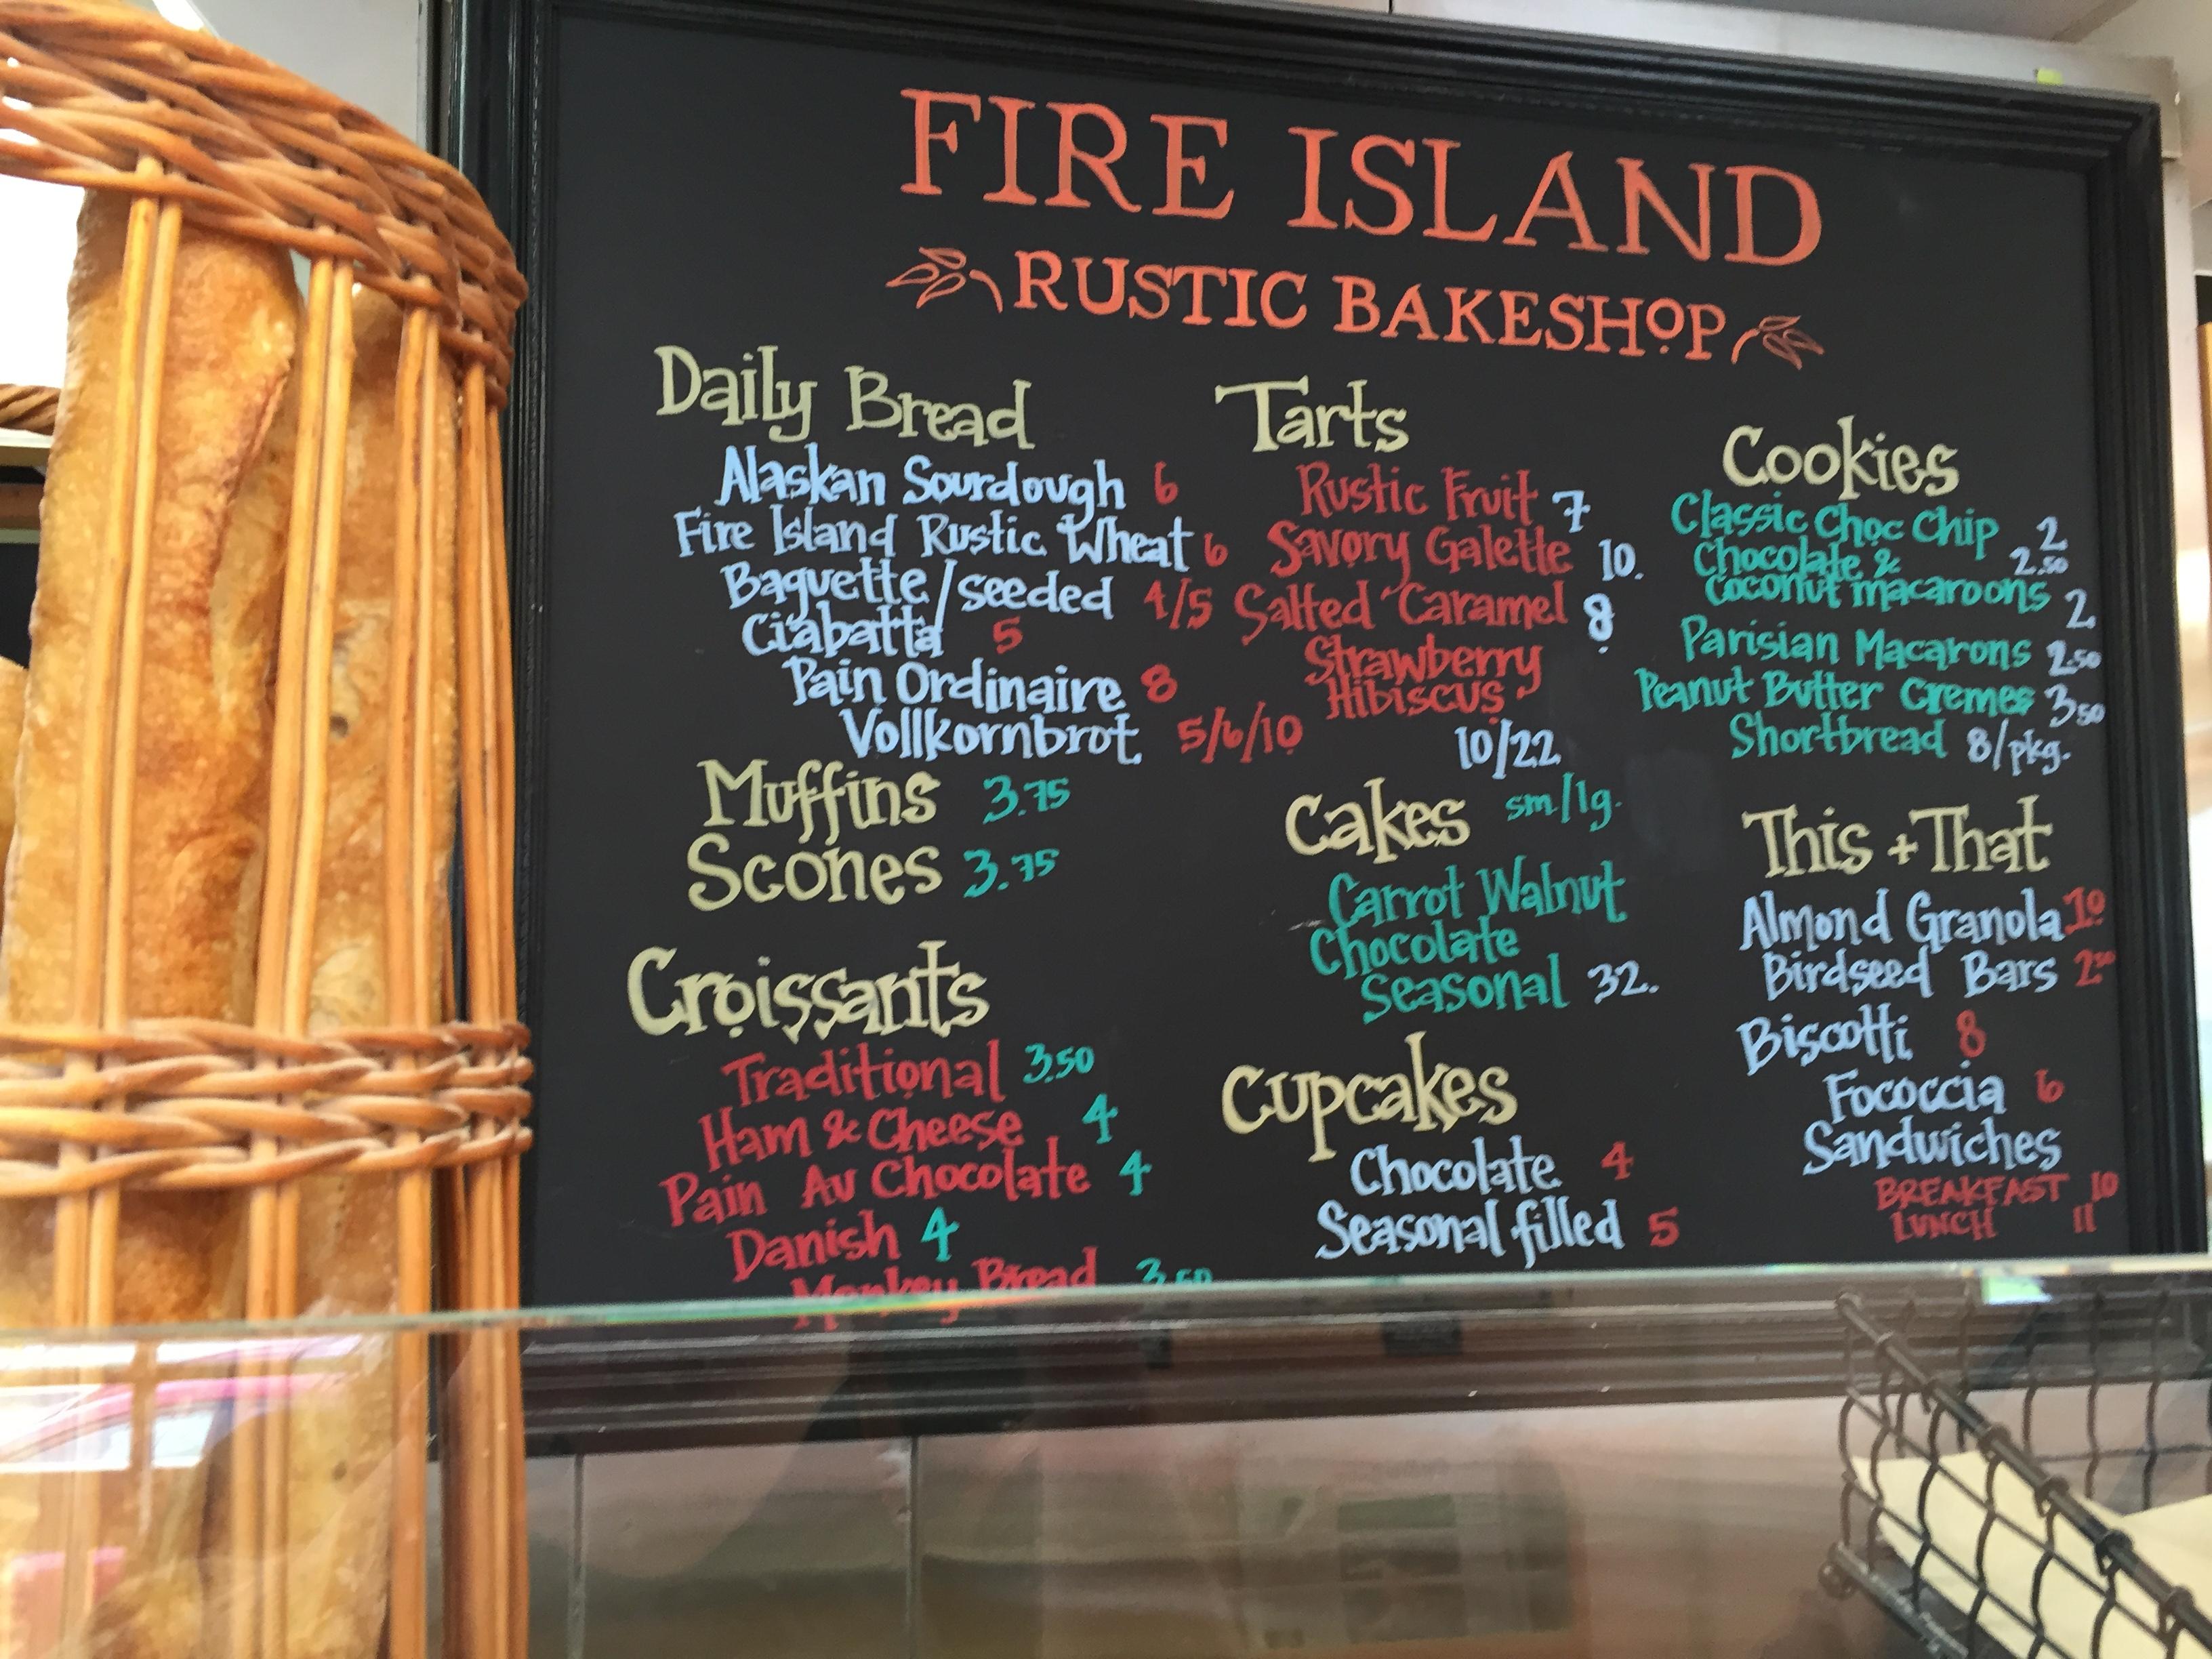 FIRE ISLAND
RUSTIC BAKESHOP
Daily Bread
Alaskan Sourdough 6
Fire Island Rustic Wheat 6
Baguette/seeded 4/5
Ciabatta 5
Pain Ordinaire 8
Vollkornbrot 5/6/10
Muffins 3.75
Scones 3.75
Croissants
Traditional 3.50
Ham & Cheese 4
Pain Au Chocolate 4
Danish 4
Monkey Bread 3.50
Tarts
Rustic Fruit 7
Savory Galette 10.
Salted Caramel 8.
Strawberry
Hibiscus
10/22
Cakes sm/lg.
Carrot Walnut
Chocolate
Seasonal 32.
Cupcakes
Chocolate 4
Seasonal filled 5
Cookies
Classic Choc Chip 2
Chocolate & 2.50
Coconut macaroons 2
Parisian Macarons 2.50
Peanut Butter Cremes 3.50
Shortbread 8/pkg.
This + That
Almond Granola 10
Birdseed Bars 2.50
Biscotti 8
Fococcia 6
Sandwiches
BREAKFAST 10
LUNCH 11